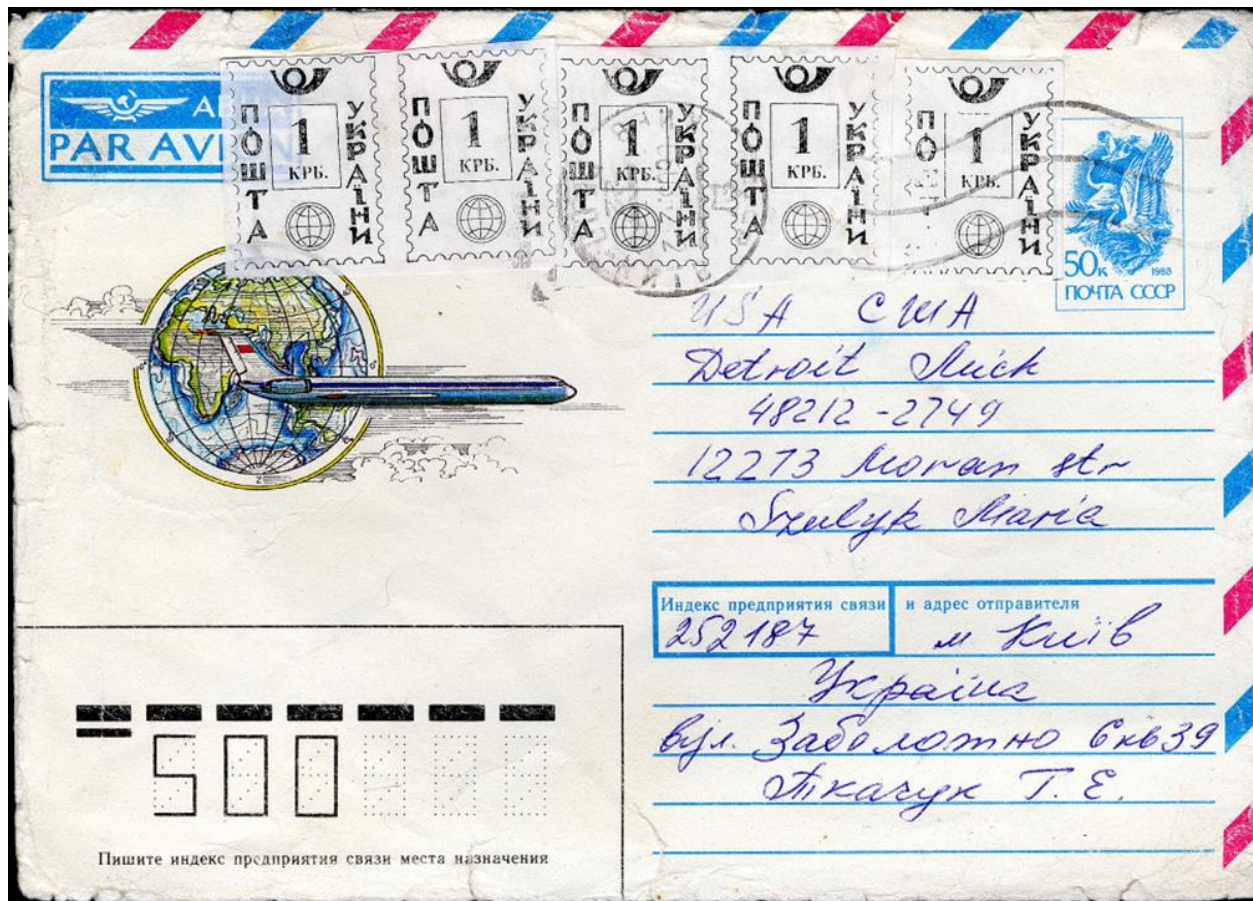 PAR AVI
ПОШТА 1 КРБ. УКРАЇНИ
ПОШТА 1 КРБ. УКРАЇНИ
ПОШТА 1 КРБ. УКРАЇНИ
ПОШТА 1 КРБ. УКРАЇНИ
1 КРБ. УКРАЇНИ
50к 1988
ПОЧТА СССР
USA США
Detroit Mich
48212-2749
12273 Moran str
Szulyk Maria
Индекс предприятия связи и адрес отправителя
252187 м Київ
Україна
вул. Заболотно 6 кв 39
Ткачук Т. Е.
500
Пишите индекс предприятия связи места назначения